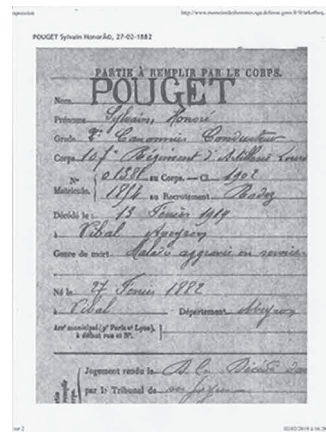 http://www.memoiredeshommes.sga.defense.gouv.fr
POUGET Sylvain HonorÃ©, 27-02-1882
PARTIE À REMPLIR PAR LE CORPS.
Nom POUGET
Prénoms Sylvain, Honoré
Grade 2e Canonnier Conducteur
Corps Régiment d'Artillerie Lourde
N° Matricule. 01381 au Corps. — Cl. 1902
1854 au Recrutement Rodez
Décédé le 13 Février 1919
à Vibal Aveyron
Genre de mort Maladie aggravée en service
Né le 27 Février 1882
à Vibal Département Aveyron
Arr' municipal (p' Paris et Lyon),
à défaut rue et N°.
Jugement rendu le
par le Tribunal de ses foyers
02/02/2019 à